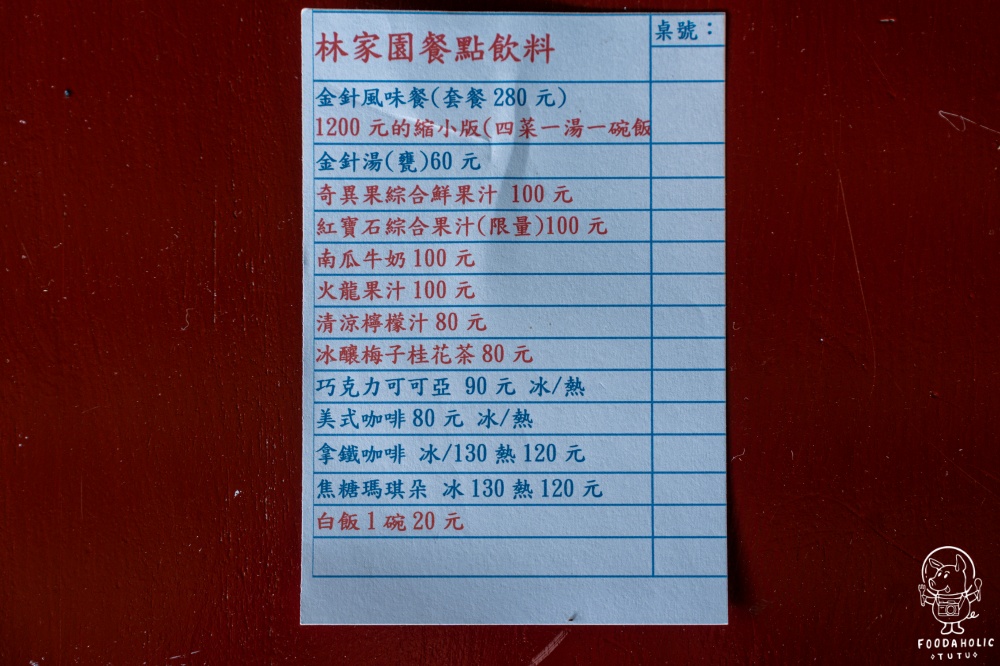 林家園餐點飲料
桌號：
金針風味餐(套餐280元)
1200元的縮小版(四菜一湯一碗飯
金針湯(甕)60元
奇異果綜合鮮果汁 100元
紅寶石綜合果汁(限量)100元
南瓜牛奶100元
火龍果汁100元
清涼檸檬汁80元
冰釀梅子桂花茶80元
巧克力可可亞 90元 冰/熱
美式咖啡80元 冰/熱
拿鐵咖啡 冰/130熱120元
焦糖瑪琪朵 冰130熱120元
白飯1碗20元
FOODAHOLIC
TUTU